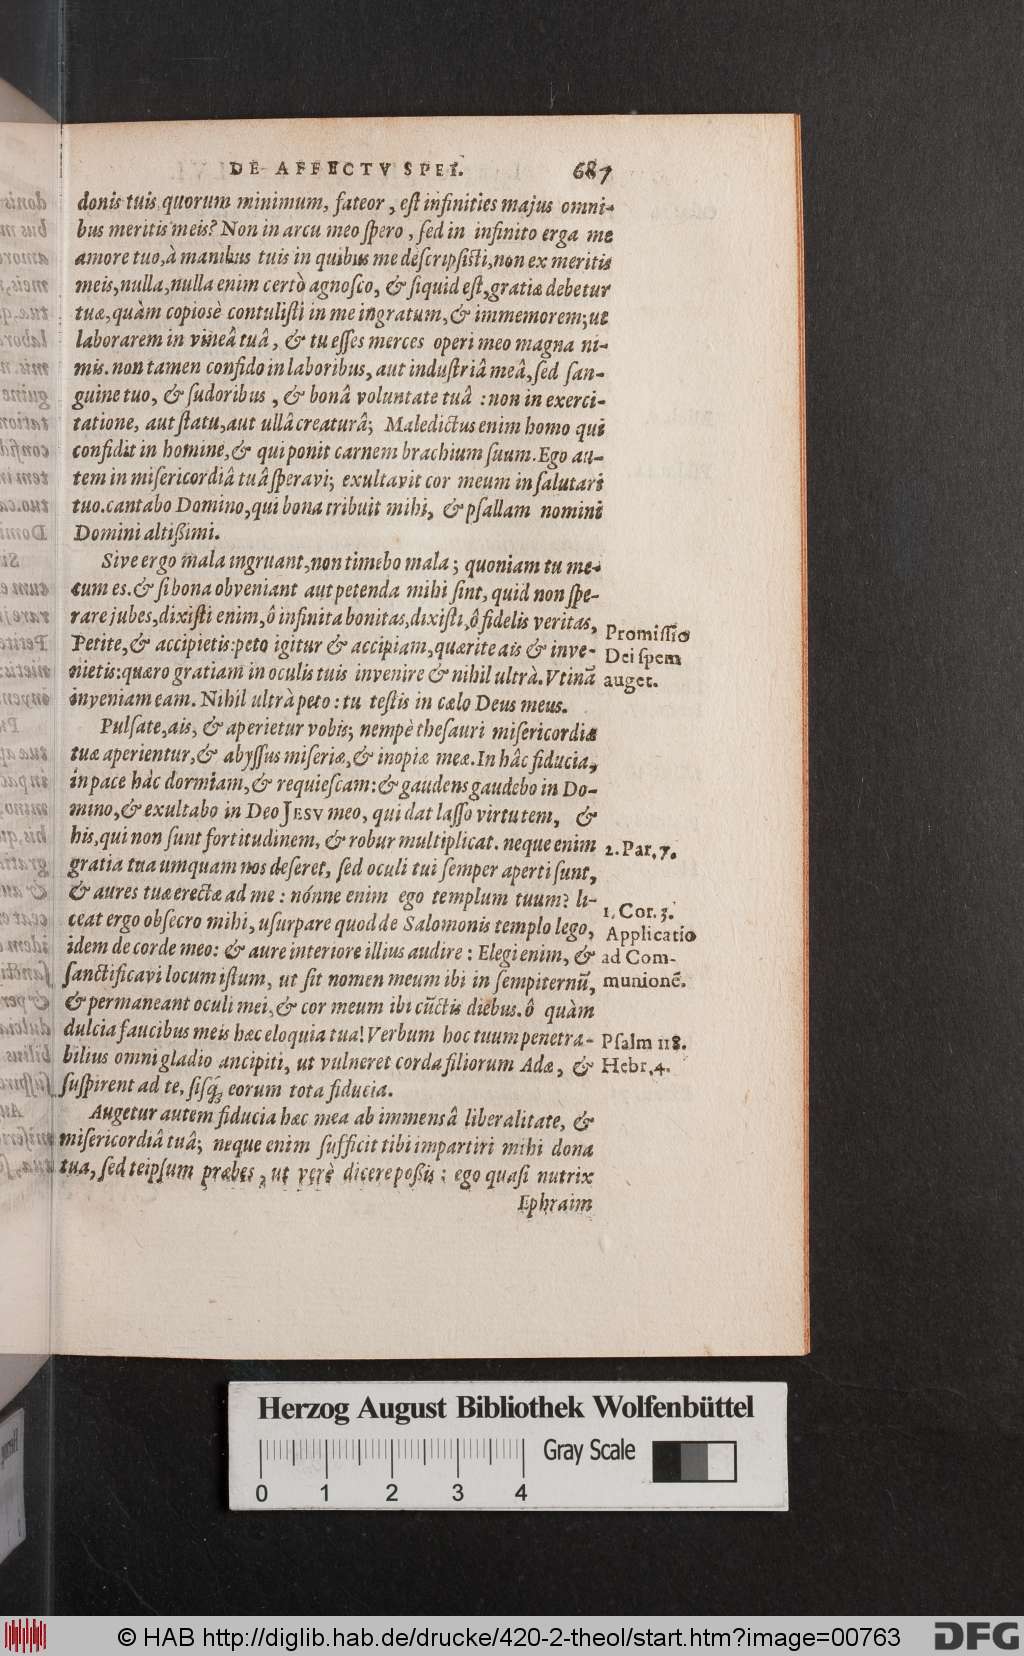 DE AFFECTV SPEI. 687
donis tuis quorum minimum, fateor, est infinities majus omni-
bus meritis meis? Non in arcu meo spero, sed in infinito erga me
amore tuo, à manibus tuis in quibus me descripsisti, non ex meritis
meis, nulla, nulla enim certò agnosco, & siquid est, gratiæ debetur
tuæ, quàm copiosè contulisti in me ingratum, & immemorem; ut
laborarem in vineâ tuâ, & tu esses merces operi meo magna ni-
mis. non tamen confido in laboribus, aut industriâ meâ, sed san-
guine tuo, & sudoribus, & bonâ voluntate tuâ : non in exerci-
tatione, aut statu, aut ullâ creaturâ; Maledictus enim homo qui
confidit in homine, & qui ponit carnem brachium suum. Ego au-
tem in misericordiâ tuâ speravi; exultavit cor meum in salutari
tuo. cantabo Domino, qui bona tribuit mihi, & psallam nomini
Domini altißimi.
Sive ergo mala ingruant, non timebo mala; quoniam tu me-
cum es. & si bona obveniant aut petenda mihi sint, quid non spe-
rare jubes, dixisti enim, ô infinita bonitas, dixisti, ô fidelis veritas,
Petite, & accipietis: peto igitur & accipiam, quærite ais & inve-
nietis: quæro gratiam in oculis tuis invenire & nihil ultrà. Vtinã
inveniam eam. Nihil ultrà peto : tu testis in cælo Deus meus.
Promissio
Dei spem
auget.
Pulsate, ais, & aperietur vobis; nempè thesauri misericordiæ
tuæ aperientur, & abyssus miseriæ, & inopiæ meæ. In hâc fiducia,
in pace hàc dormiam, & requiescam: & gaudens gaudebo in Do-
mino, & exultabo in Deo JESV meo, qui dat lasso virtutem, &
his, qui non sunt fortitudinem, & robur multiplicat. neque enim
gratia tua umquam nos deseret, sed oculi tui semper aperti sunt,
& aures tuæ erectæ ad me : nónne enim ego templum tuum? li-
ceat ergo obsecro mihi, usurpare quod de Salomonis templo lego,
idem de corde meo: & aure interiore illius audire : Elegi enim, &
sanctificavi locum istum, ut sit nomen meum ibi in sempiternũ,
& permaneant oculi mei, & cor meum ibi cũctis diebus. ô quàm
dulcia faucibus meis hæc eloquia tua! Verbum hoc tuum penetra-
bilius omni gladio ancipiti, ut vulneret corda filiorum Adæ, &
suspirent ad te, sisq́; eorum tota fiducia.
2. Par. 7.
1. Cor. 3.
Applicatio
ad Com-
munionẽ.
Psalm 118.
Hebr. 4.
Augetur autem fiducia hæc mea ab immensâ liberalitate, &
misericordiâ tuâ; neque enim sufficit tibi impartiri mihi dona
tua, sed teipsum præbes, ut verè dicere poßis : ego quasi nutrix
Ephraim
Herzog August Bibliothek Wolfenbüttel
Gray Scale
0 1 2 3 4
© HAB http://diglib.hab.de/drucke/420-2-theol/start.htm?image=00763
DFG